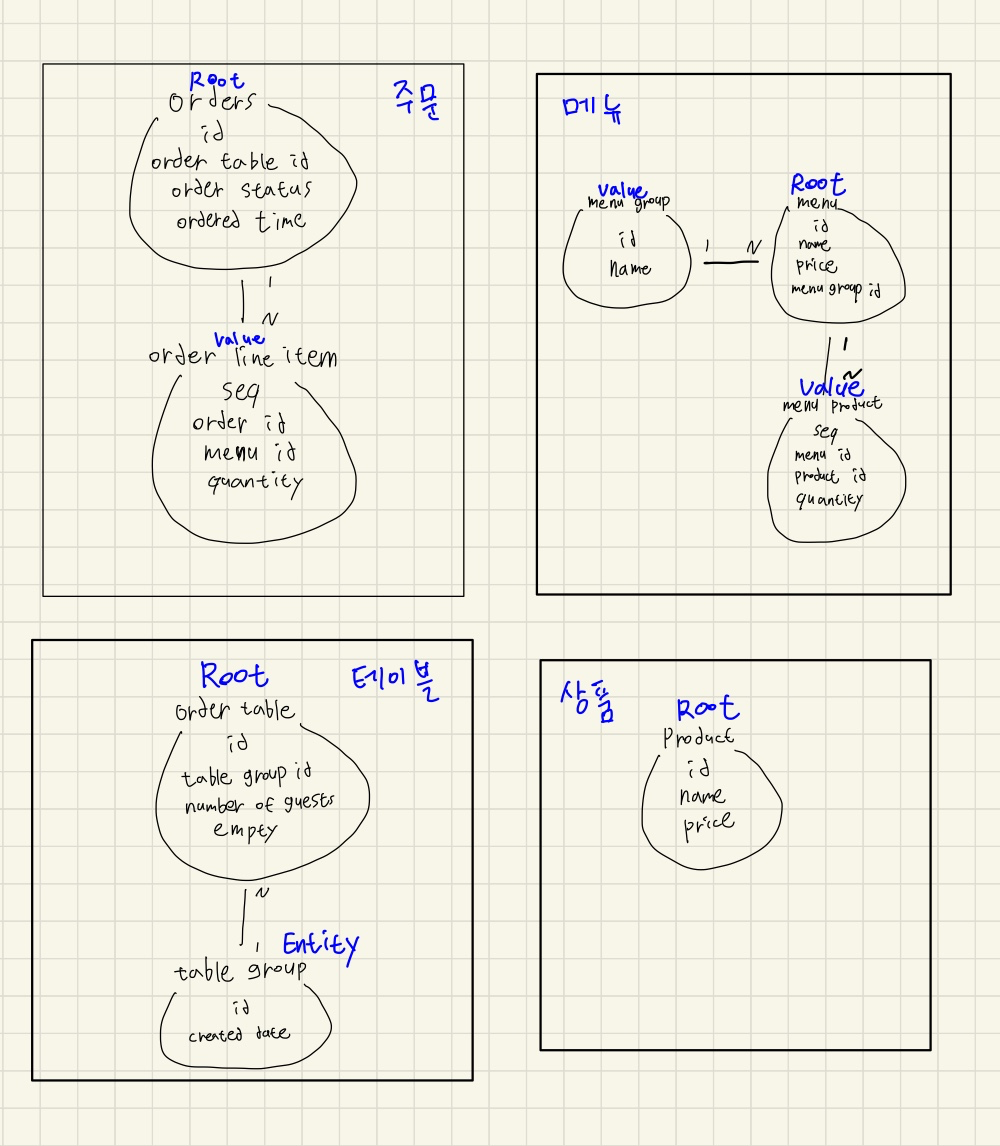 주문
Root
orders
id
order table id
order status
ordered time
1
N
value
order line item
seq
order id
menu id
quantity
메뉴
value
menu group
id
name
1 N
Root
menu
id
name
price
menu group id
1
N
value
menu product
seq
menu id
product id
quantity
테이블
Root
order table
id
table group id
number of guests
empty
N
1
Entity
table group
id
created date
상품
Root
Product
id
name
price